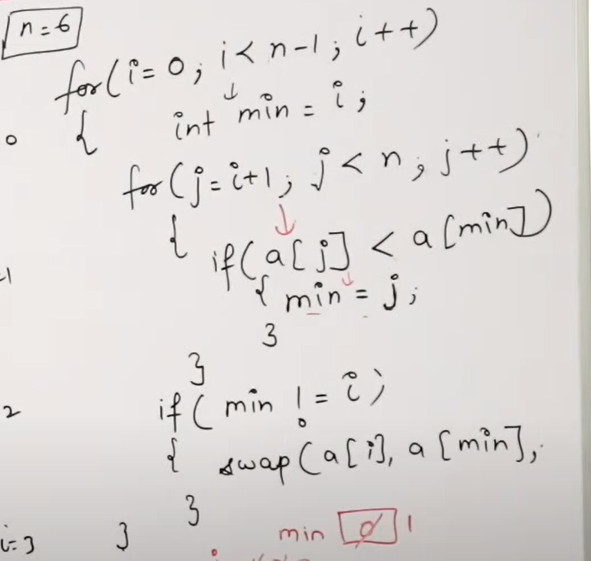 n=6
for(i=0; i<n-1; i++)
0 { int min = i;
for(j=i+1; j<n; j++)
{ if(a[j] < a[min])
-1 { min = j;
}
}
2 if( min != i)
{ swap(a[i], a[min],
}
i=3 }
min 0 1